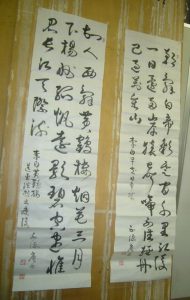 朝辭白帝彩雲間千里江陵
一日還兩岸猿聲啼不住輕舟
已過萬重山
故人西辭黃鶴樓烟花三月
下揚州孤帆遠影碧空盡惟
見長江天際流
李白黃鶴樓
送孟浩然之廣陵